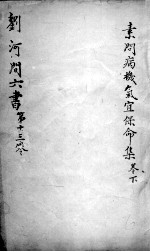 素問病機氣宜保命集卷下
劉河間六書 第十三